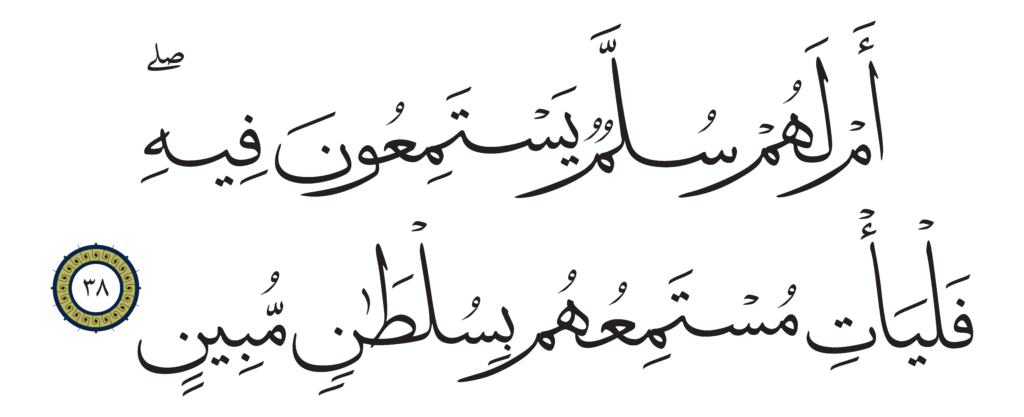 أَمۡ لَهُمۡ سُلَّمٞ يَسۡتَمِعُونَ فِيهِۖ
فَلۡيَأۡتِ مُسۡتَمِعُهُم بِسُلۡطَٰنٖ مُّبِينٍ ٣٨